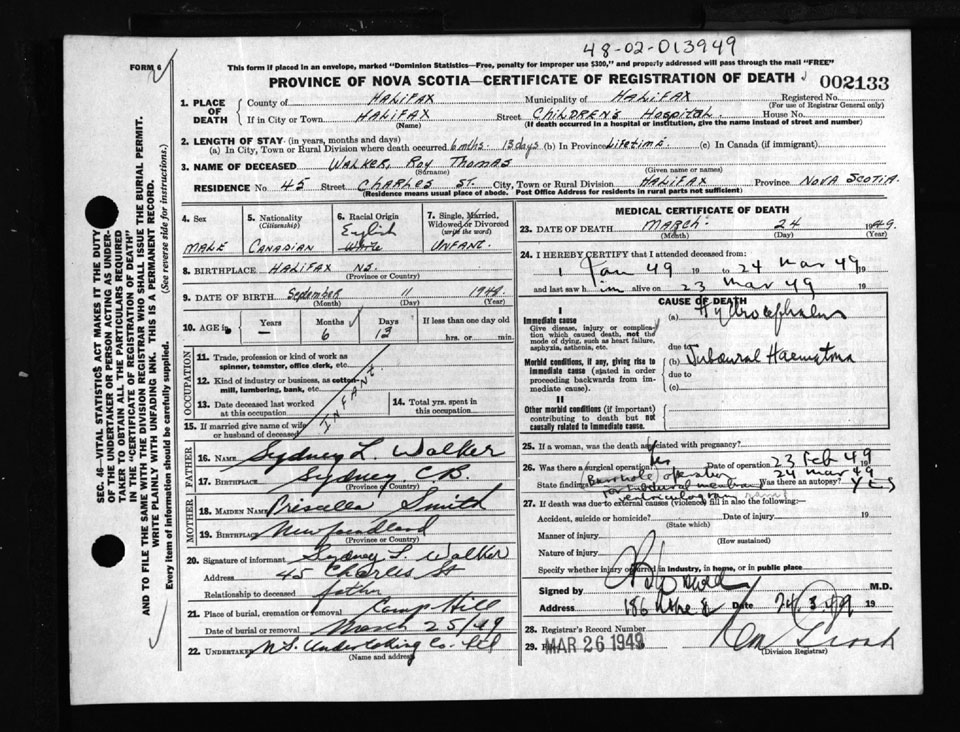 48-02-013949
FORM 6
This form if placed in an envelope, marked "Dominion Statistics—Free, penalty for improper use $300," and properly addressed will pass through the mail "FREE"
PROVINCE OF NOVA SCOTIA—CERTIFICATE OF REGISTRATION OF DEATH
002133
SEC. 46—VITAL STATISTICS ACT MAKES IT THE DUTY
OF THE UNDERTAKER OR PERSON ACTING AS UNDER-
TAKER TO OBTAIN ALL THE PARTICULARS REQUIRED
IN THE "CERTIFICATE OF REGISTRATION OF DEATH"
AND TO FILE THE SAME WITH THE DIVISION REGISTRAR WHO SHALL ISSUE THE BURIAL PERMIT.
WRITE PLAINLY WITH UNFADING INK. THIS IS A PERMANENT RECORD.
Every item of information should be carefully supplied. (See reverse side for instructions.)
1. PLACE OF DEATH County of HALIFAX Municipality of HALIFAX Registered No.
(For use of Registrar General only)
If in City or Town HALIFAX Street CHILDRENS Hospital. House No.
(Name) (If death occurred in a hospital or institution, give the name instead of street and number)
2. LENGTH OF STAY (in years, months and days)
(a) In City, Town or Rural Division where death occurred 6 mths. 13 days (b) In Province Lifetime. (c) In Canada (if immigrant)
3. NAME OF DECEASED WALKER, Roy Thomas
(Surname) (Given name or names)
RESIDENCE No 45 Street CHARLES ST. City, Town or Rural Division HALIFAX Province NOVA SCOTIA.
(Residence means usual place of abode. Post Office Address for residents in rural parts not sufficient)
4. Sex MALE
5. Nationality (Citizenship) CANADIAN
6. Racial Origin English White
7. Single, Married, Widowed or Divorced (write the word) INFANT.
8. BIRTHPLACE HALIFAX NS.
(Province or Country)
9. DATE OF BIRTH September 11 1948.
(Month) (Day) (Year)
10. AGE Years — Months 6 Days 13 If less than one day old
hrs. or min.
OCCUPATION
11. Trade, profession or kind of work as spinner, teamster, office clerk, etc.
12. Kind of industry or business, as cotton-mill, lumbering, bank, etc.
INFANT
13. Date deceased last worked at this occupation
14. Total Yrs. spent in this occupation
15. If married give name of wife or husband of deceased
FATHER
16. Name Sydney L. Walker
17. Birthplace Sydney C.B.
(Province or Country)
MOTHER
18. Maiden Name Priscilla Smith
19. Birthplace Newfoundland
(Province or Country)
20. Signature of informant Sydney L. Walker
Address 45 Charles St
Relationship to deceased father
21. Place of burial, cremation or removal Camp Hill
Date of burial or removal March 25/49
22. UNDERTAKER N.S. Undertaking Co. Ltd
(Name and address)
MEDICAL CERTIFICATE OF DEATH
23. DATE OF DEATH MARCH 24 1949.
(Month) (Day) (Year)
24. I HEREBY CERTIFY that I attended deceased from:
1 Jan 49 19 to 24 Mar 49 19
and last saw him alive on 23 Mar 49 19
CAUSE OF DEATH
I
Immediate cause (a) Hydrocephalus
Give disease, injury or complication which caused death, not the mode of dying, such as heart failure, asphyxia, asthenia, etc.
Morbid conditions, if any, giving rise to immediate cause (stated in order proceeding backwards from immediate cause). (b) Subdural Haematoma
(c)
II
Other morbid conditions (if important) contributing to death but not causally related to immediate cause.
25. If a woman, was the death associated with pregnancy?
26. Was there a surgical operation? Yes Date of operation 23 Feb 49
24 Mar 49
State findings Burrhole operation subdural membrane Was there an autopsy? Yes
ventriculogram
27. If death was due to external causes (violence) fill in also the following:—
Accident, suicide or homicide? Date of injury 19
(State which)
Manner of injury
(How sustained)
Nature of injury
Specify whether injury occurred in industry, in home, or in public place
Signed by M.D.
Address 186 Date 24/3/49 19
28. Registrar's Record Number
29. MAR 26 1949
(Division Registrar)